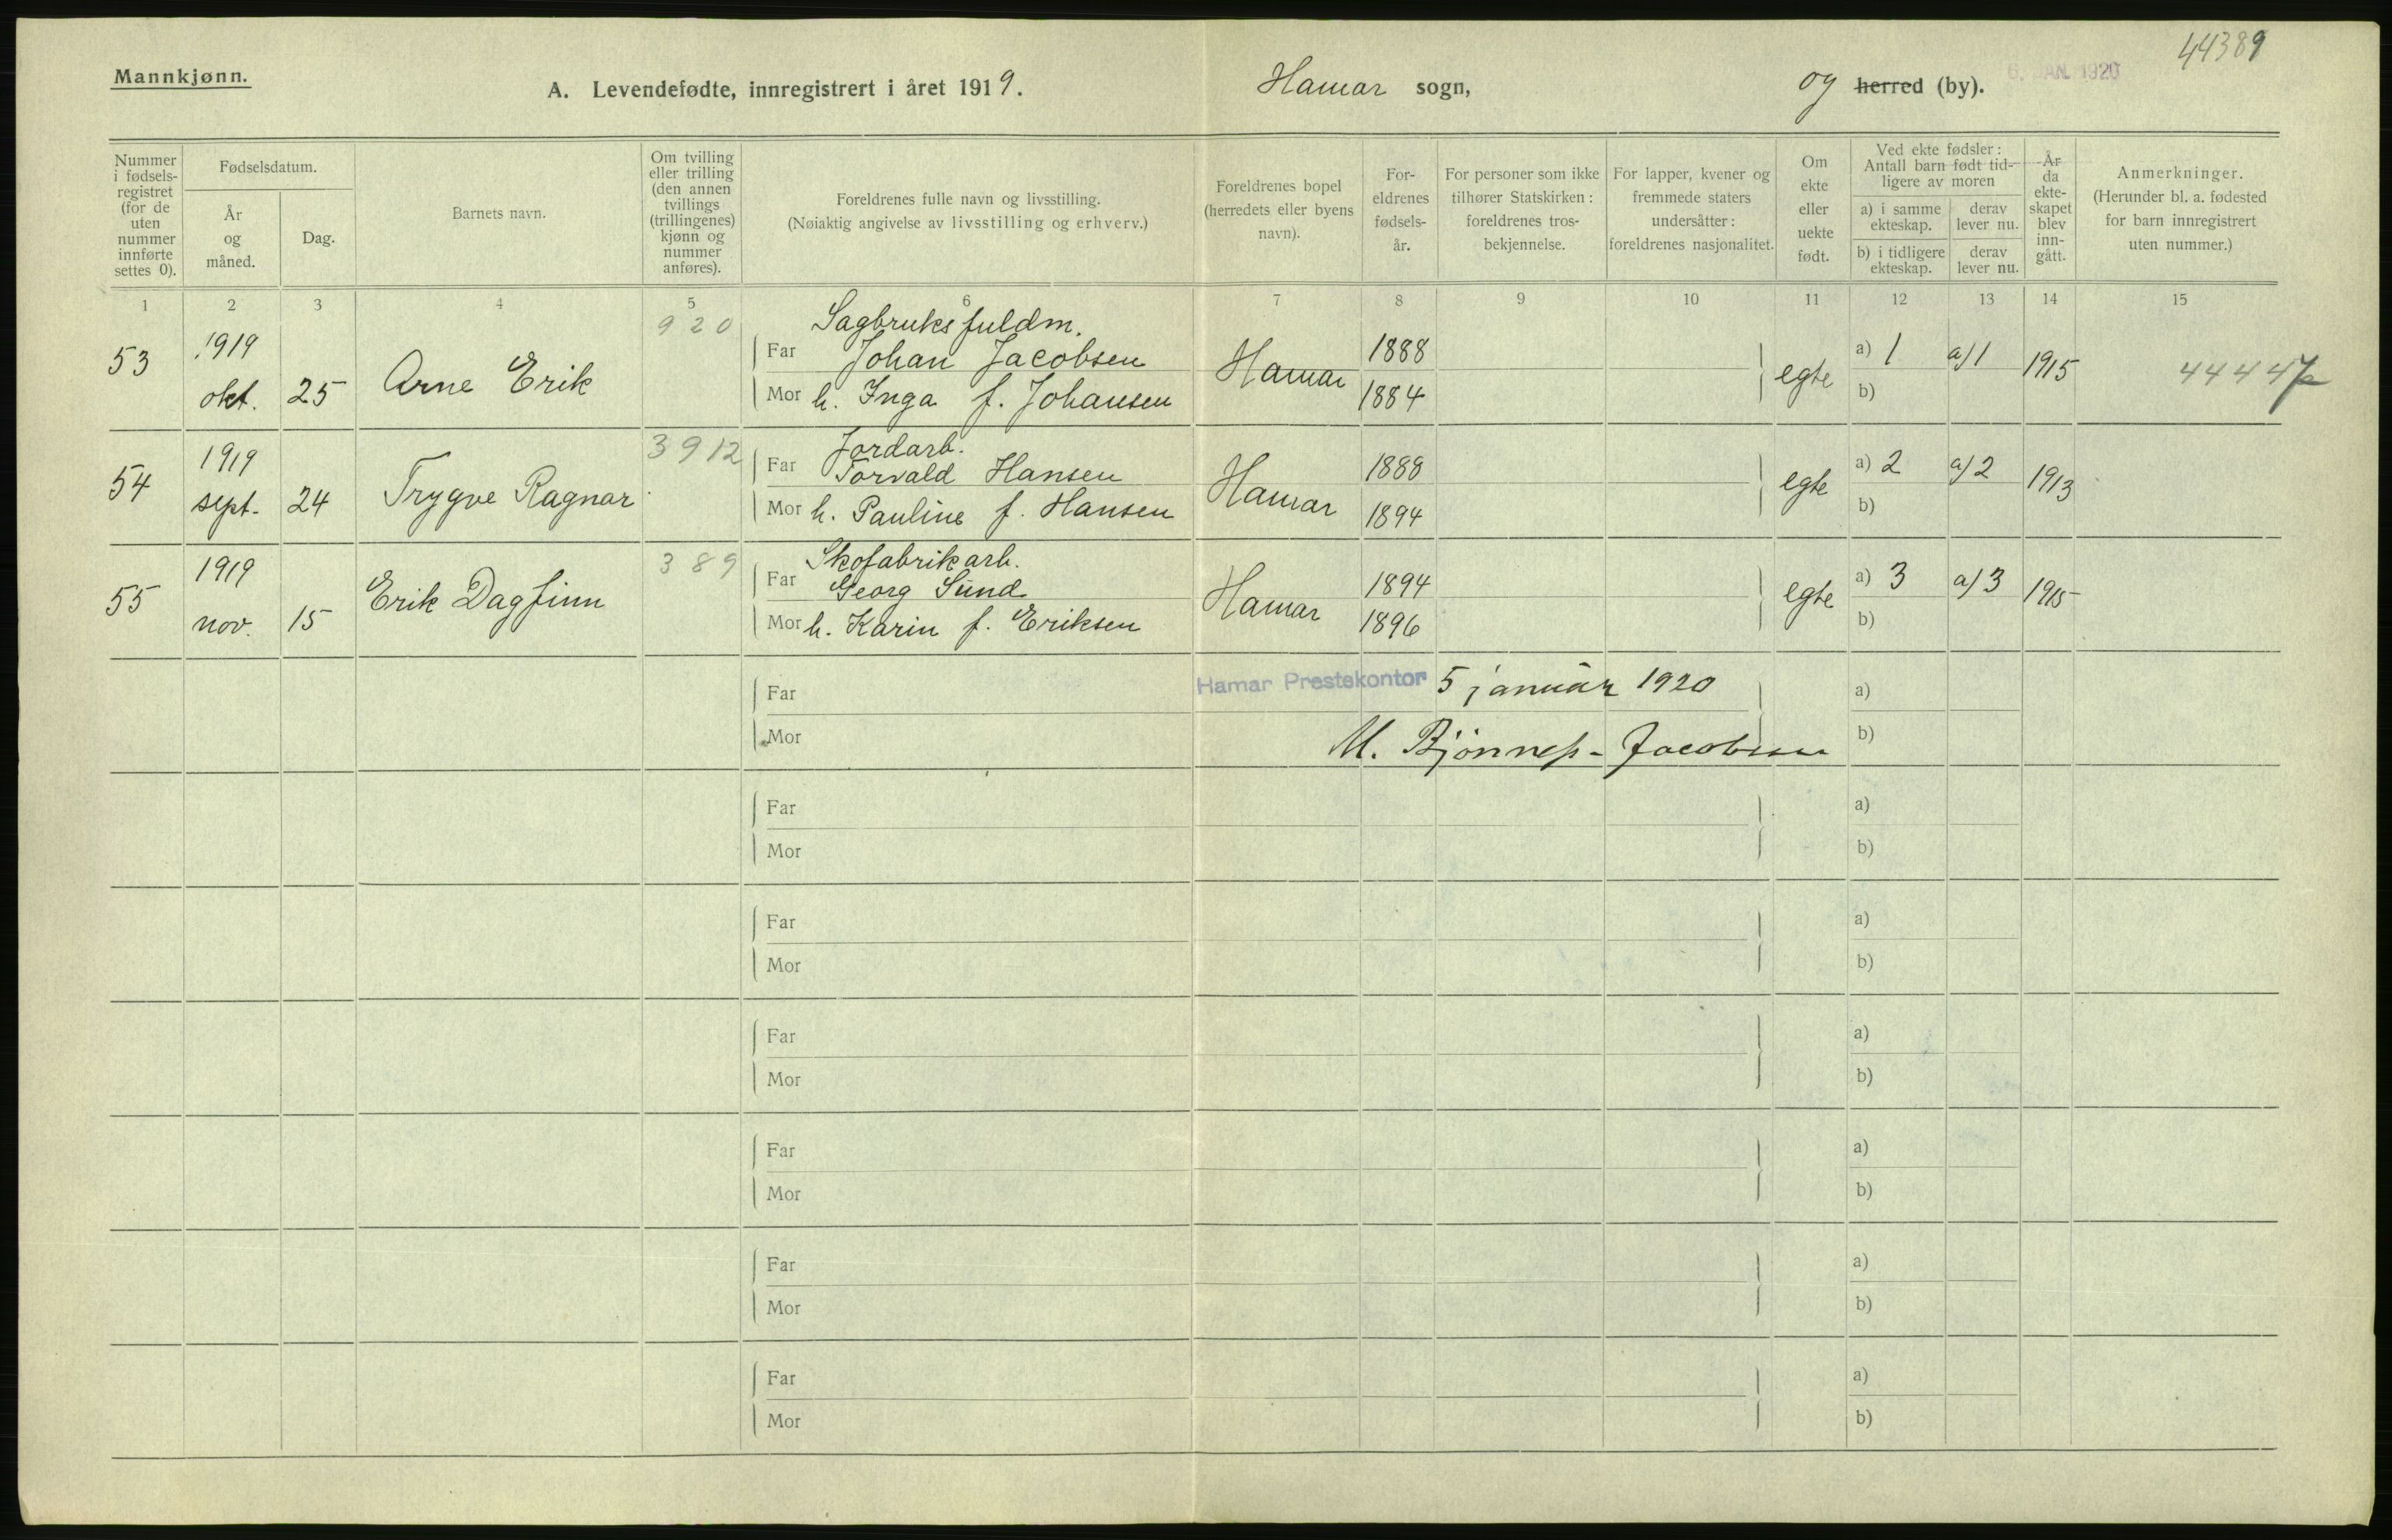 44389
Mannkjønn.
A. Levendefødte, innregistrert i året 1919. Hamar sogn, og herred (by).
6. JAN. 1920
Nummer i fødsels-registret (for de uten nummer innførte settes 0).
Fødselsdatum.
År og måned.
Dag.
Barnets navn.
Om tvilling eller trilling (den annen tvillings (trillingenes) kjønn og nummer anføres).
Foreldrenes fulle navn og livsstilling.
(Nøiaktig angivelse av livsstilling og erhverv.)
Foreldrenes bopel (herredets eller byens navn).
For-eldrenes fødsels-år.
For personer som ikke tilhører Statskirken: foreldrenes tros-bekjennelse.
For lapper, kvener og fremmede staters undersåtter: foreldrenes nasjonalitet.
Om ekte eller uekte født.
Ved ekte fødsler: Antall barn født tid-ligere av moren
a) i samme ekteskap.
derav lever nu.
b) i tidligere ekteskap.
derav lever nu.
År da ekte-skapet blev inn-gått.
Anmerkninger.
(Herunder bl. a. fødested for barn innregistrert uten nummer.)
1 2 3 4 5 6 7 8 9 10 11 12 13 14 15
920 Sagbruksfuldm.
53 1919 Far Johan Jacobsen Hamar 1888 egte a) 1 a) 1 1915
okt. 25 Arne Erik Mor h. Inga f. Johansen 1884 b)
3912 Jordarb.
54 1919 Far Torvald Hansen Hamar 1888 egte a) 2 a) 2 1913
sept. 24 Trygve Ragnar Mor h. Pauline f. Hansen 1894 b)
389 Skofabrikarb.
55 1919 Far Georg Sund Hamar 1894 egte a) 3 a) 3 1915
nov. 15 Erik Dagfinn Mor h. Karin f. Eriksen 1896 b)
Far Hamar Prestekontor 5 januar 1920 a)
Mor M. Bjønness-Jacobsen b)
Far a)
Mor b)
Far a)
Mor b)
Far a)
Mor b)
Far a)
Mor b)
Far a)
Mor b)
Far a)
Mor b)